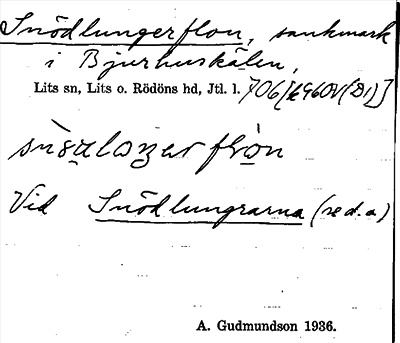 Snödlungerflon, sankmark
i Bjurhuskälen,
Lits sn, Lits o. Rödöns hd, Jtl. l. 706
Vid Snödlungrarna (se d.o)
A. Gudmundson 1936.